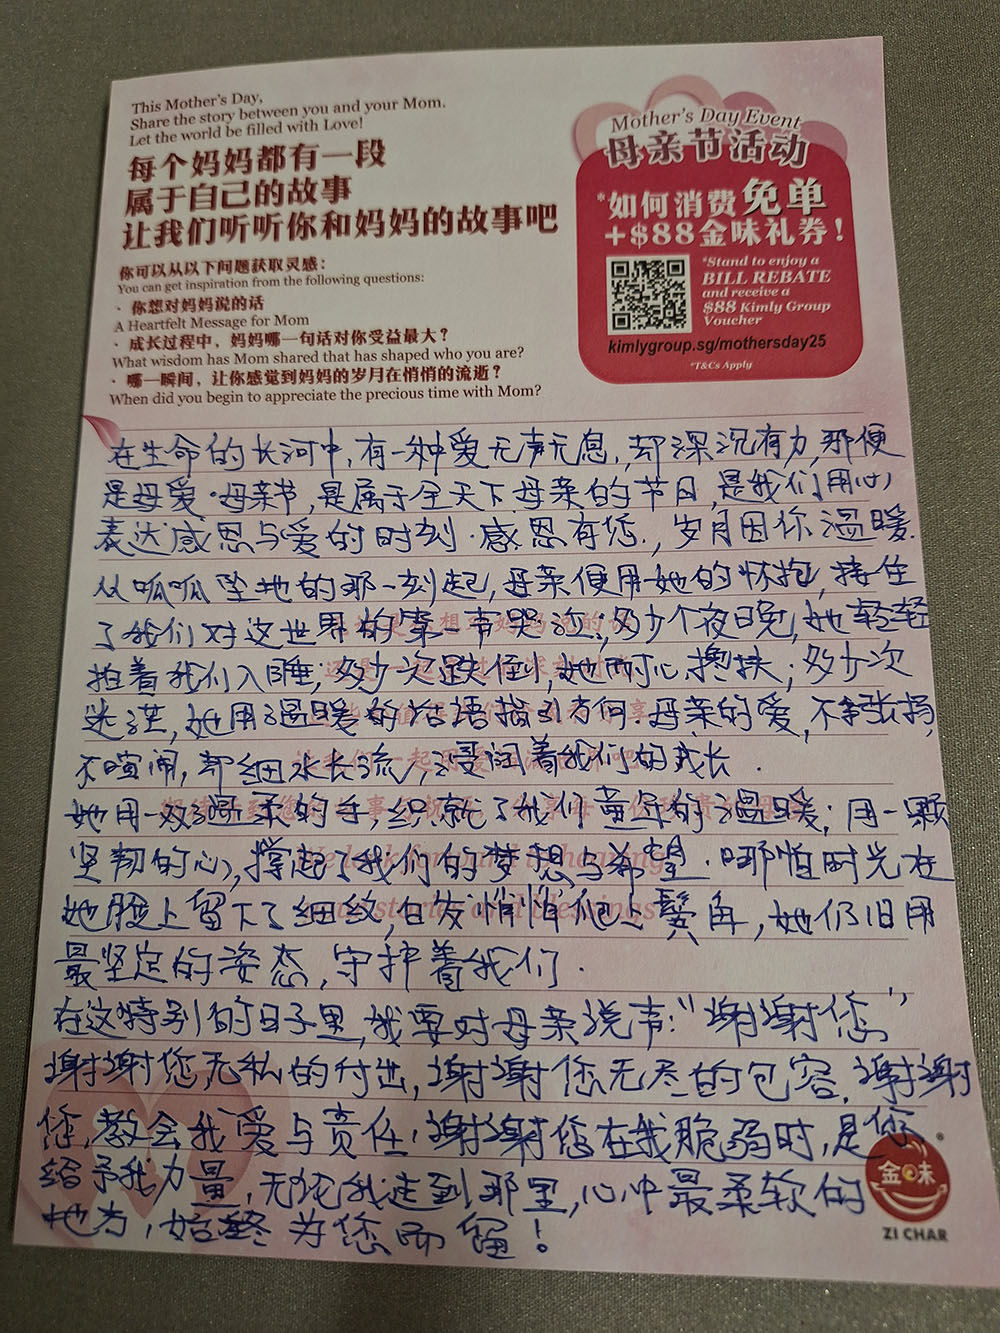 This Mother's Day,
Share the story between you and your Mom.
Let the world be filled with Love!
每个妈妈都有一段
属于自己的故事
让我们听听你和妈妈的故事吧
你可以从以下问题获取灵感：
You can get inspiration from the following questions:
· 你想对妈妈说的话
A Heartfelt Message for Mom
· 成长过程中，妈妈哪一句话对你受益最大？
What wisdom has Mom shared that has shaped who you are?
· 哪一瞬间，让你感觉到妈妈的岁月在悄悄的流逝？
When did you begin to appreciate the precious time with Mom?
Mother's Day Event
母亲节活动
*如何消费免单
+$88金味礼券！
*Stand to enjoy a
BILL REBATE
and receive a
$88 Kimly Group
Voucher
kimlygroup.sg/mothersday25
*T&Cs Apply
在生命的长河中，有一种爱无声无息，却深沉有力，那便
是母爱．母亲节，是属于全天下母亲的节日，是我们用心
表达感恩与爱的时刻．感恩有您，岁月因你温暖．
从呱呱坠地的那一刻起，母亲便用她的怀抱，接住
了我们对这世界的第一声哭泣；多少个夜晚，她轻轻
拍着我们入睡；多少次跌倒，她耐心搀扶；多少次
迷茫，她用温暖的话语指引方向．母亲的爱，不事张扬，
不喧闹，却细水长流，浸润着我们的成长．
她用一双温柔的手，织就了我们童年的温暖；用一颗
坚韧的心，撑起了我们的梦想与希望．哪怕时光在
她脸上留下了细纹，白发悄悄爬上鬓角，她仍旧用
最坚定的姿态，守护着我们．
在这特别的日子里，我要对母亲说声："谢谢您"
谢谢您无私的付出，谢谢您无尽的包容．谢谢
您，教会我爱与责任；谢谢您在我脆弱时，是您
给予我力量，无论我走到那里，心中最柔软的
地方，始终为您而留！
We look forward to hearing
your stories and blessings
金味
®
ZI CHAR